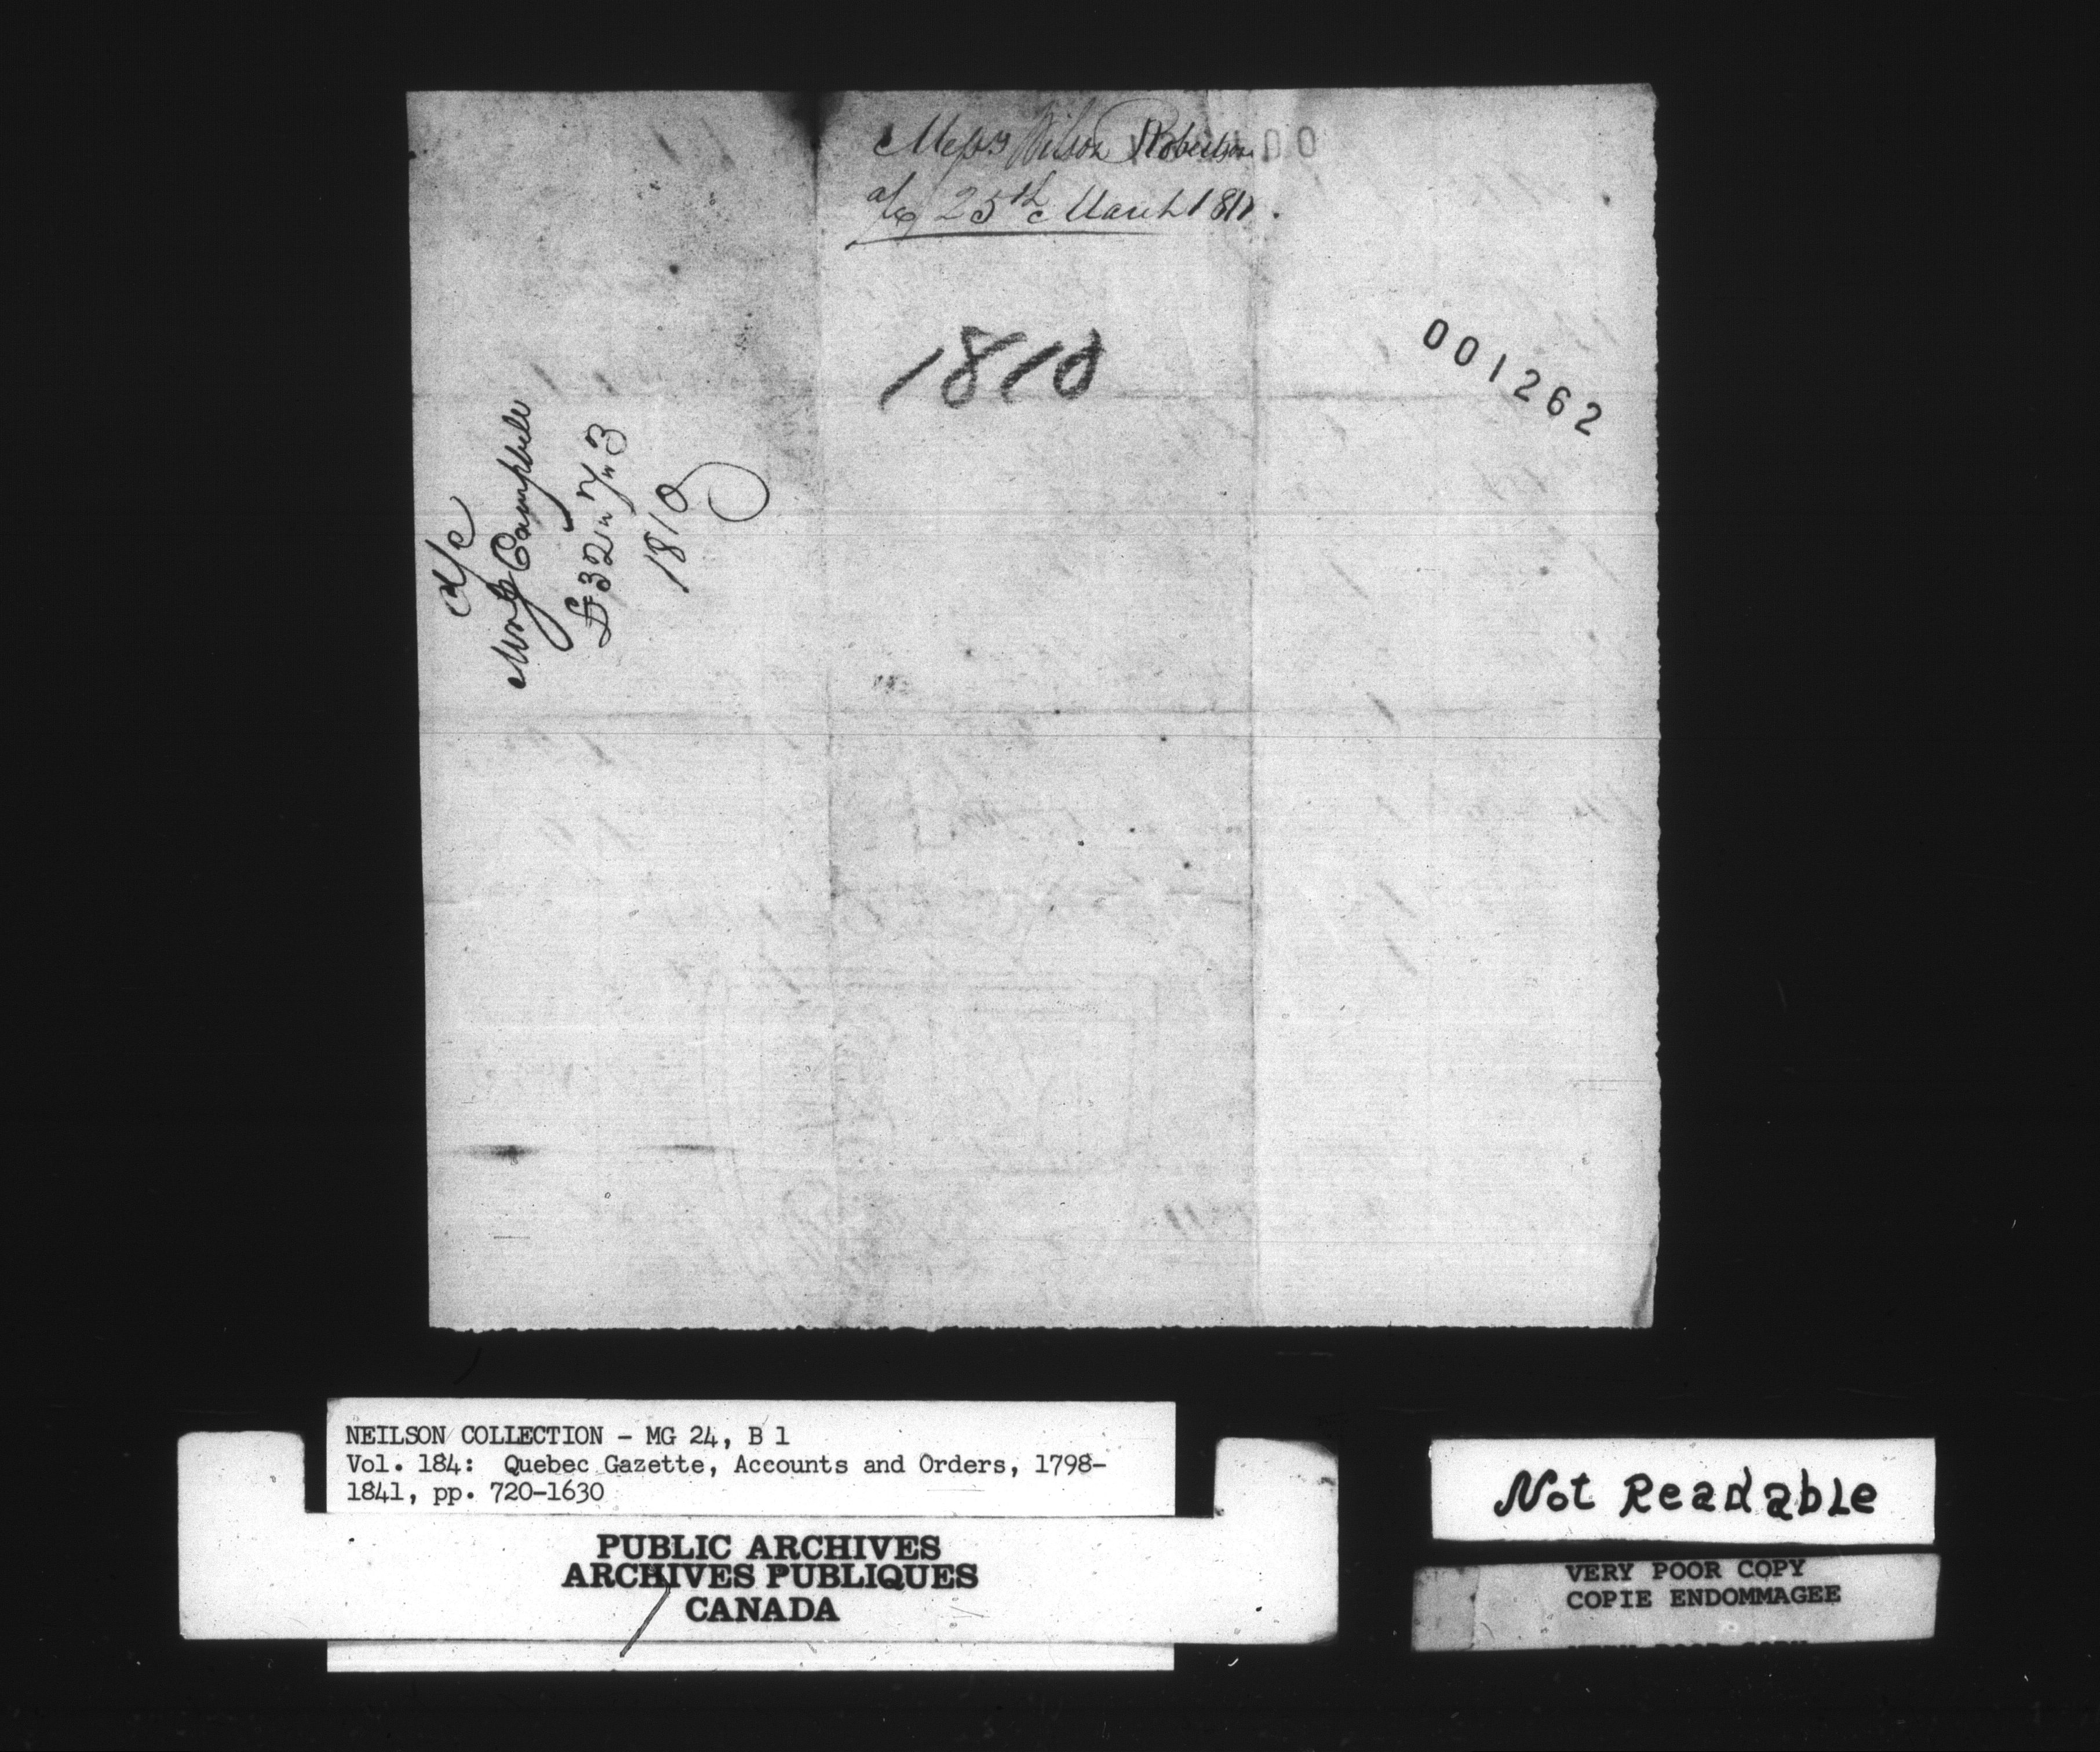 Messrs Wilson Robertson
a/c 25th March 1811.
1810
001262
a/c
Campbell
£32 " 7 " 3
1810
NEILSON COLLECTION - MG 24, B 1
Vol. 184: Quebec Gazette, Accounts and Orders, 1798-
1841, pp. 720-1630
PUBLIC ARCHIVES
ARCHIVES PUBLIQUES
CANADA
Not Readable
VERY POOR COPY
COPIE ENDOMMAGEE